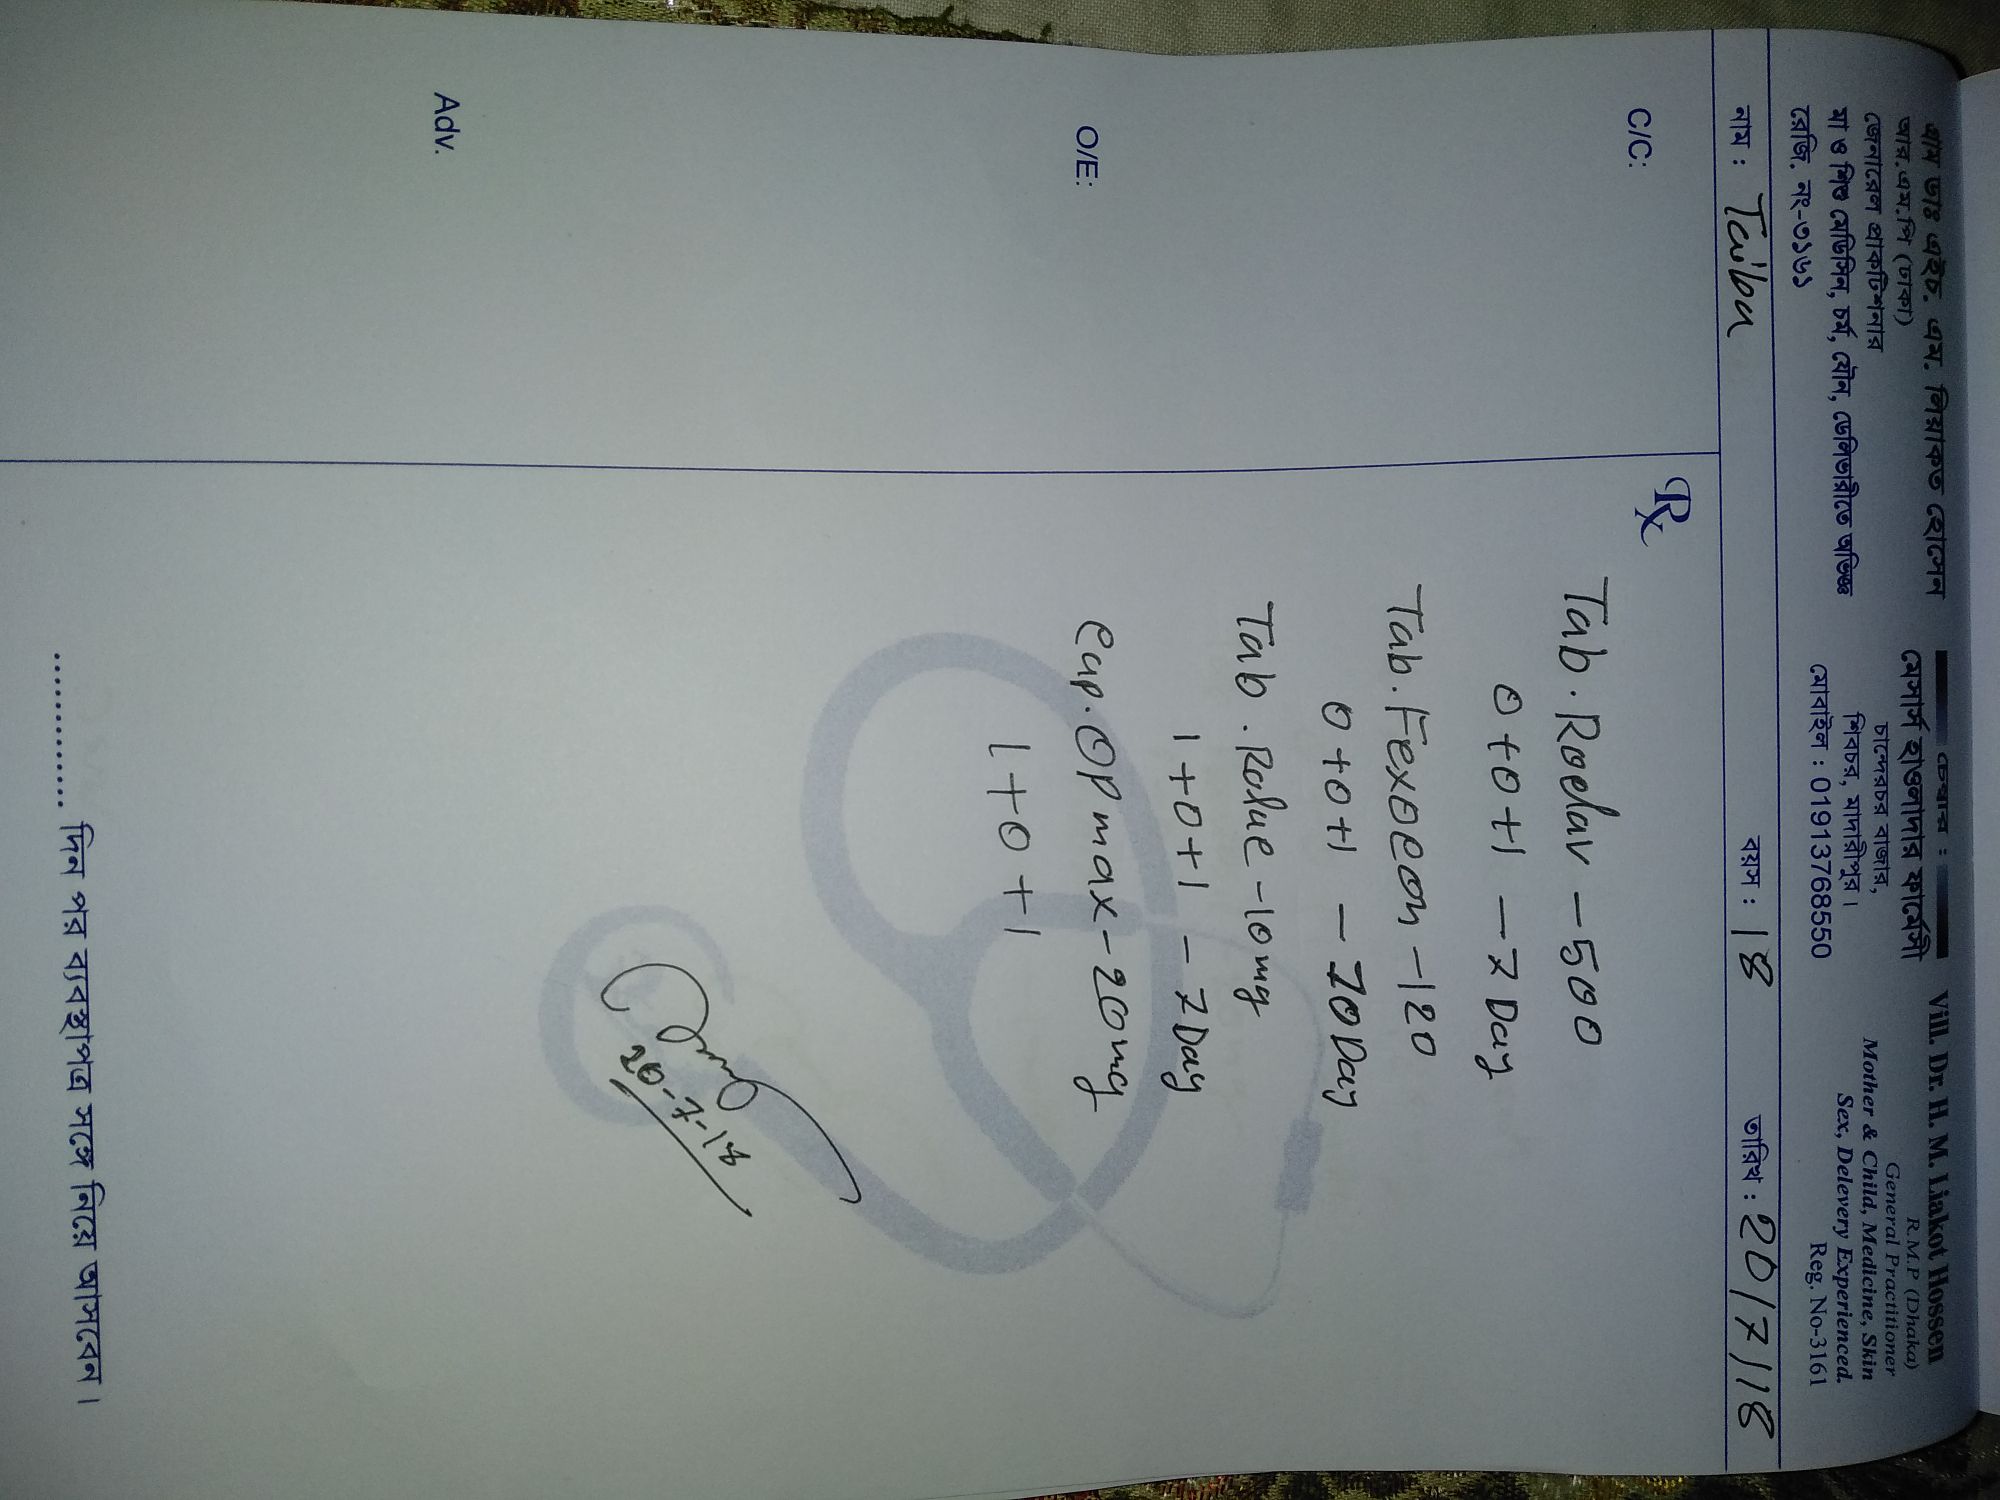 গ্রাম ডাঃ এইচ. এম. লিয়াকত হোসেন
আর.এম.পি (ঢাকা)
জেনারেল প্রাকটিশনার
মা ও শিশু মেডিসিন, চর্ম, যৌন, ডেলিভারীতে অভিজ্ঞ
রেজি. নং-৩১৬১
চেম্বার :
মেসার্স হাওলাদার ফার্মেসী
চান্দেরচর বাজার,
শিবচর, মাদারীপুর।
মোবাইল : 01913768550
Vill. Dr. H. M. Liakot Hossen
R.M.P (Dhaka)
General Practitioner
Mother & Child, Medicine, Skin
Sex, Delevery Experienced.
Reg. No-3161
নাম : Taiba বয়স : 18 তারিখ : 20/7/18
C/C:
O/E:
Adv.
Rx
Tab. Roclav - 500
0+0+1 - 7 Day
Tab. Fexocon - 120
0+0+1 - 20 Day
Tab. - 10mg
1+0+1 - 7 Day
Cap. OPmax - 20mg
1+0+1
............ দিন পর ব্যবস্থাপত্র সঙ্গে নিয়ে আসবেন।